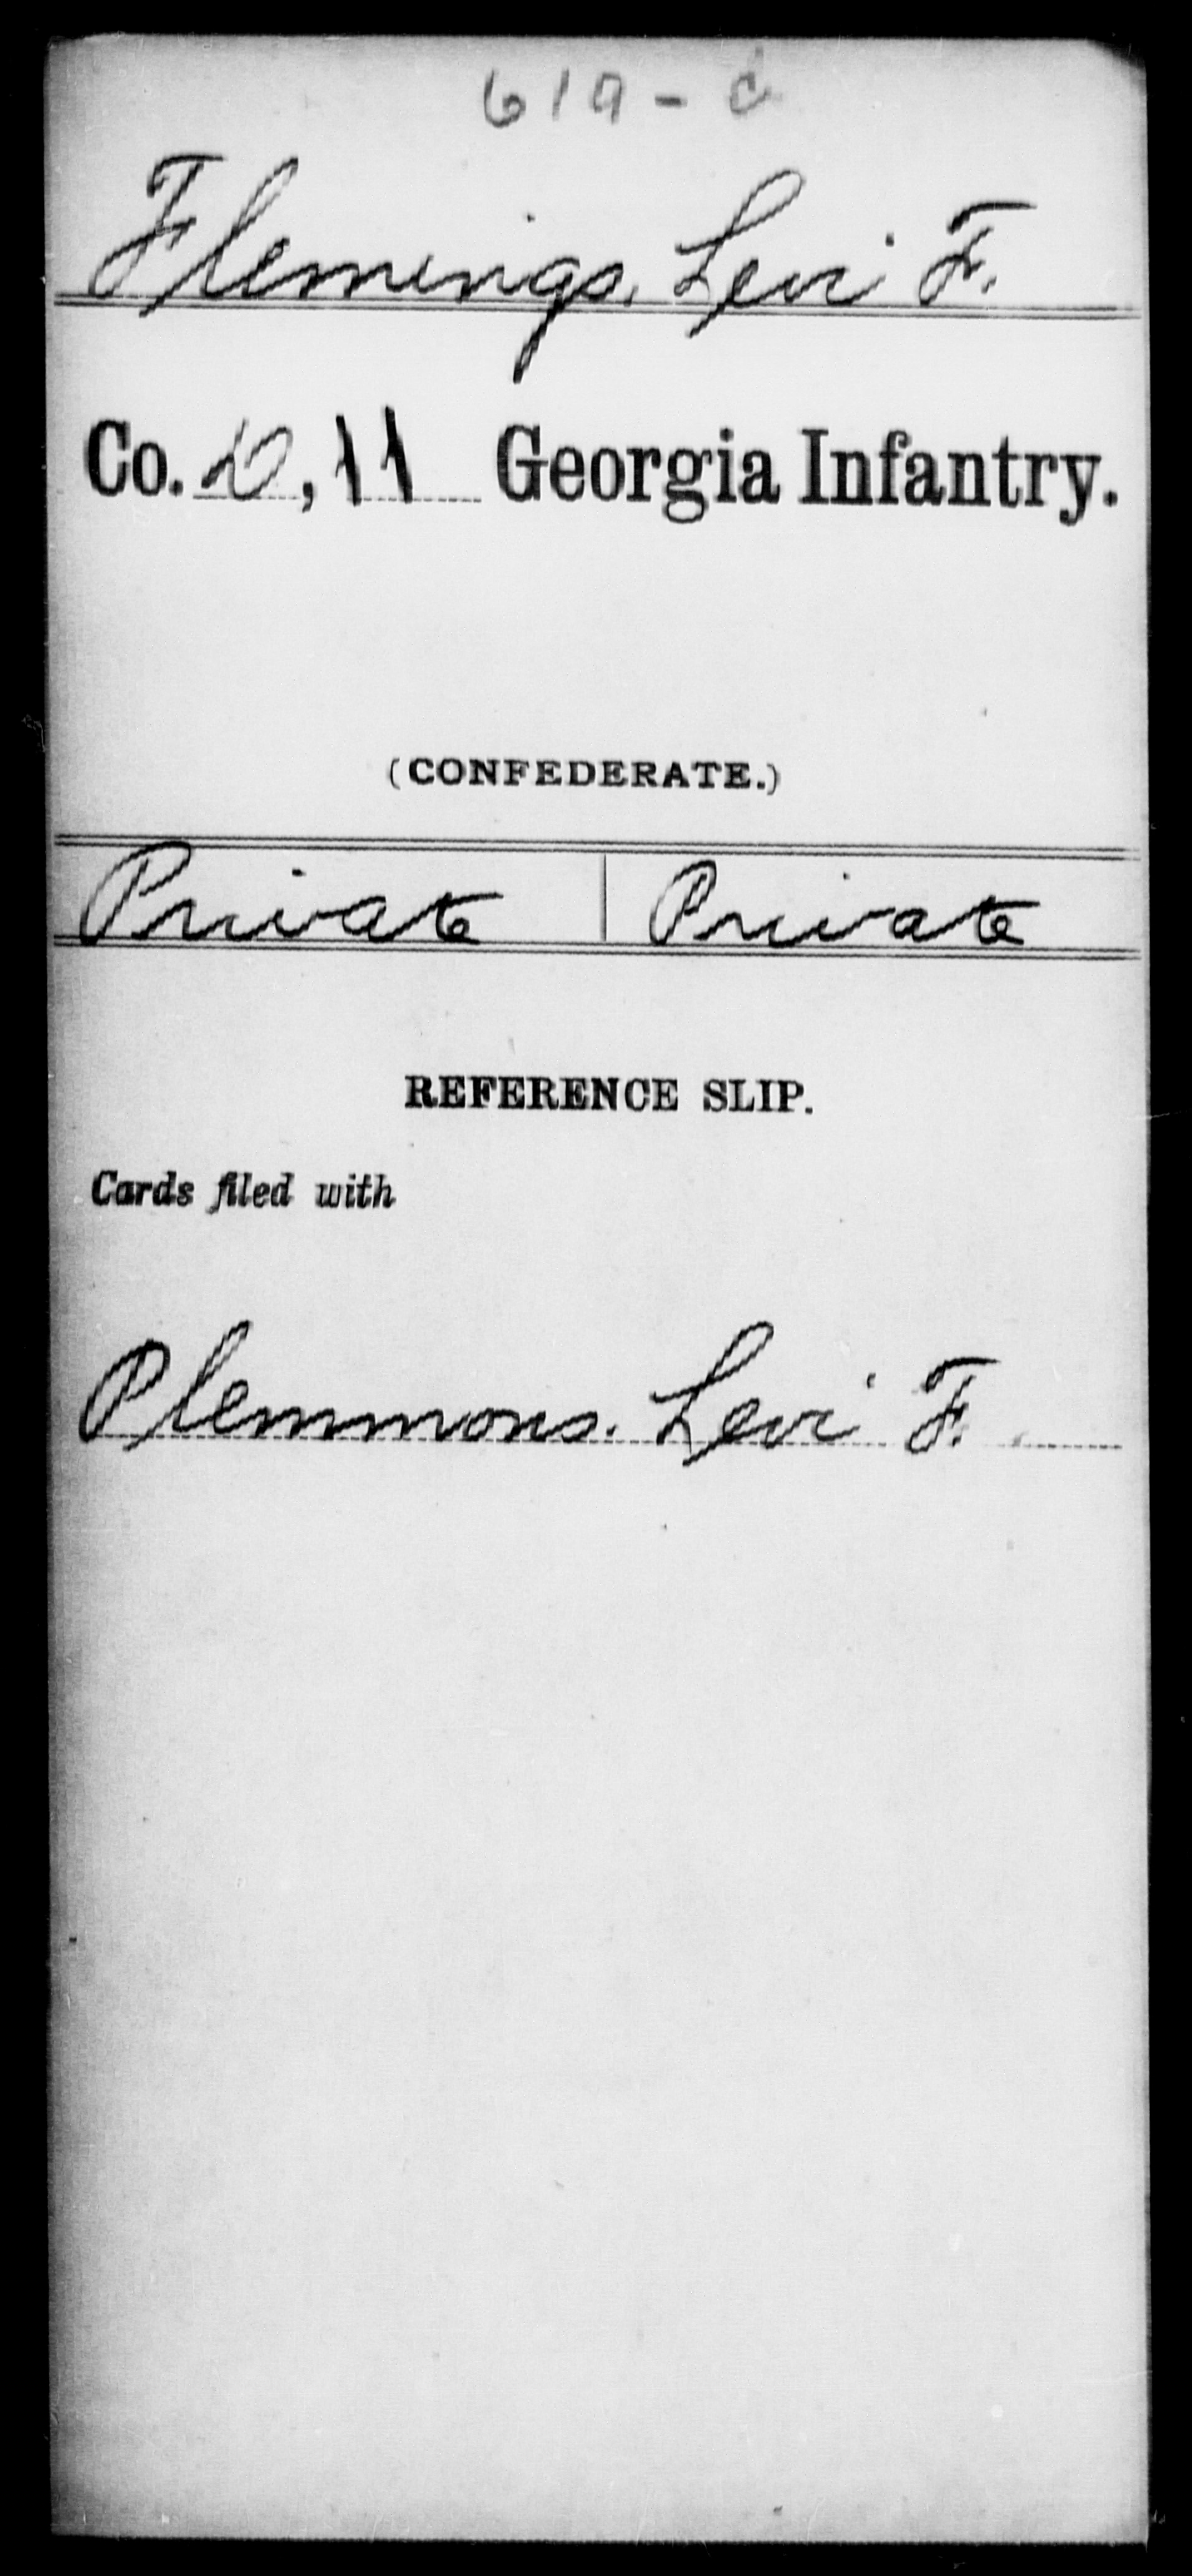 619 - C
Flemings, Levi F.
Co. D, 11 Georgia Infantry.
(CONFEDERATE.)
Private | Private
REFERENCE SLIP.
Cards filed with
Plemmons. Levi F.